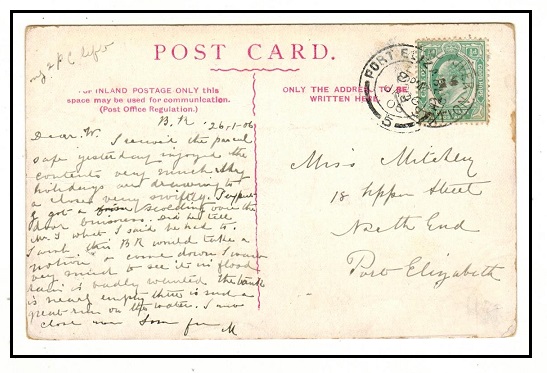 POST CARD.
FOR INLAND POSTAGE ONLY this
space may be used for communication.
(Post Office Regulation.)
ONLY THE ADDRESS TO BE
WRITTEN HERE.
PORT ELIZ
B.R. 26-1-06
Dear W.
I received the parcel
safe yesterday enjoyed the
contents very much. My
holidays are drawing to
a close very swiftly. I
got a scolding over the
door business. Did he tell
what I said he had to.
I wish this B R would take a
notion to come down I want
very much to see it in flood
rain is badly wanted the tank
is nearly empty there is such a
near run on the water. I now
close now Love from M
Miss Mitchley
18 Upper Street
North End
Port Elizabeth